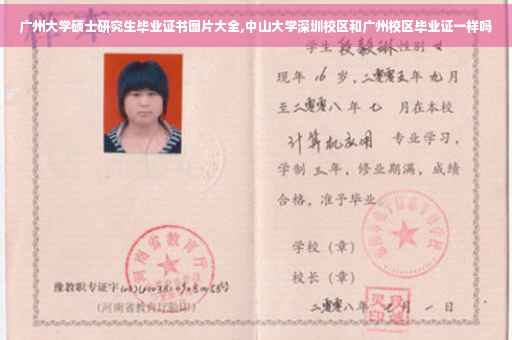 广州大学硕士研究生毕业证书图片大全,中山大学深圳校区和广州校区毕业证一样吗
学生段毅琳性别女
现年16岁,二零零五年九月
至二零零八年七 月在本校
计算机应用 专业学习,
学制三年,修业期满,成绩
合格,准予毕业
学校(章)
校长(章)
二零零八年七月一日
河南省教育厅
豫教职专证字
(河南省教育厅验印)